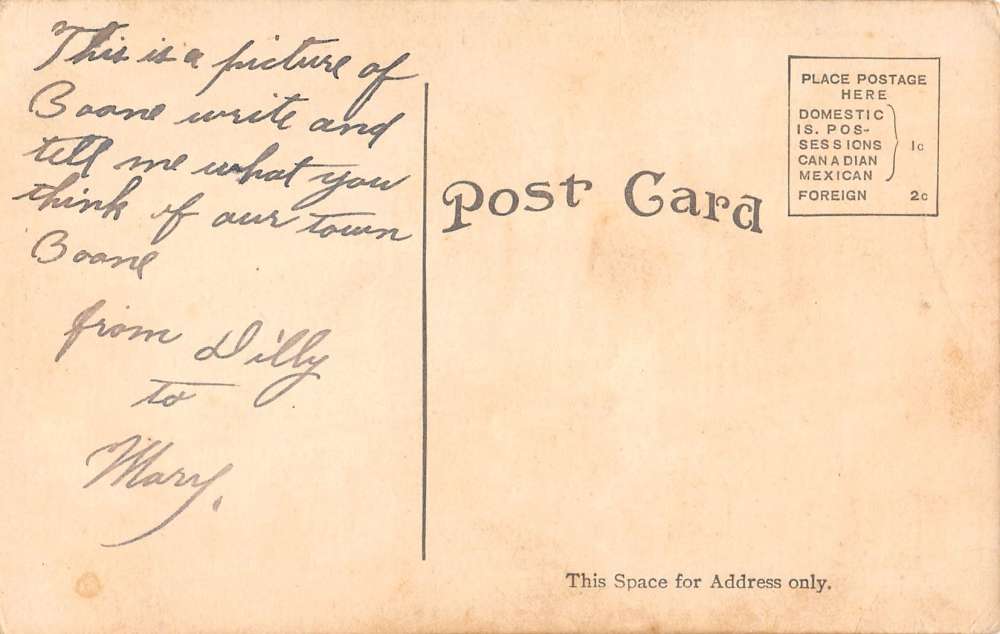 This is a picture of
Boone write and
tell me what you
think of our town
Boone
from Dilly
to
Mary.
Post Card
PLACE POSTAGE
HERE
DOMESTIC
IS. POS-
SESSIONS
CANADIAN
MEXICAN
1c
FOREIGN 2c
This Space for Address only.